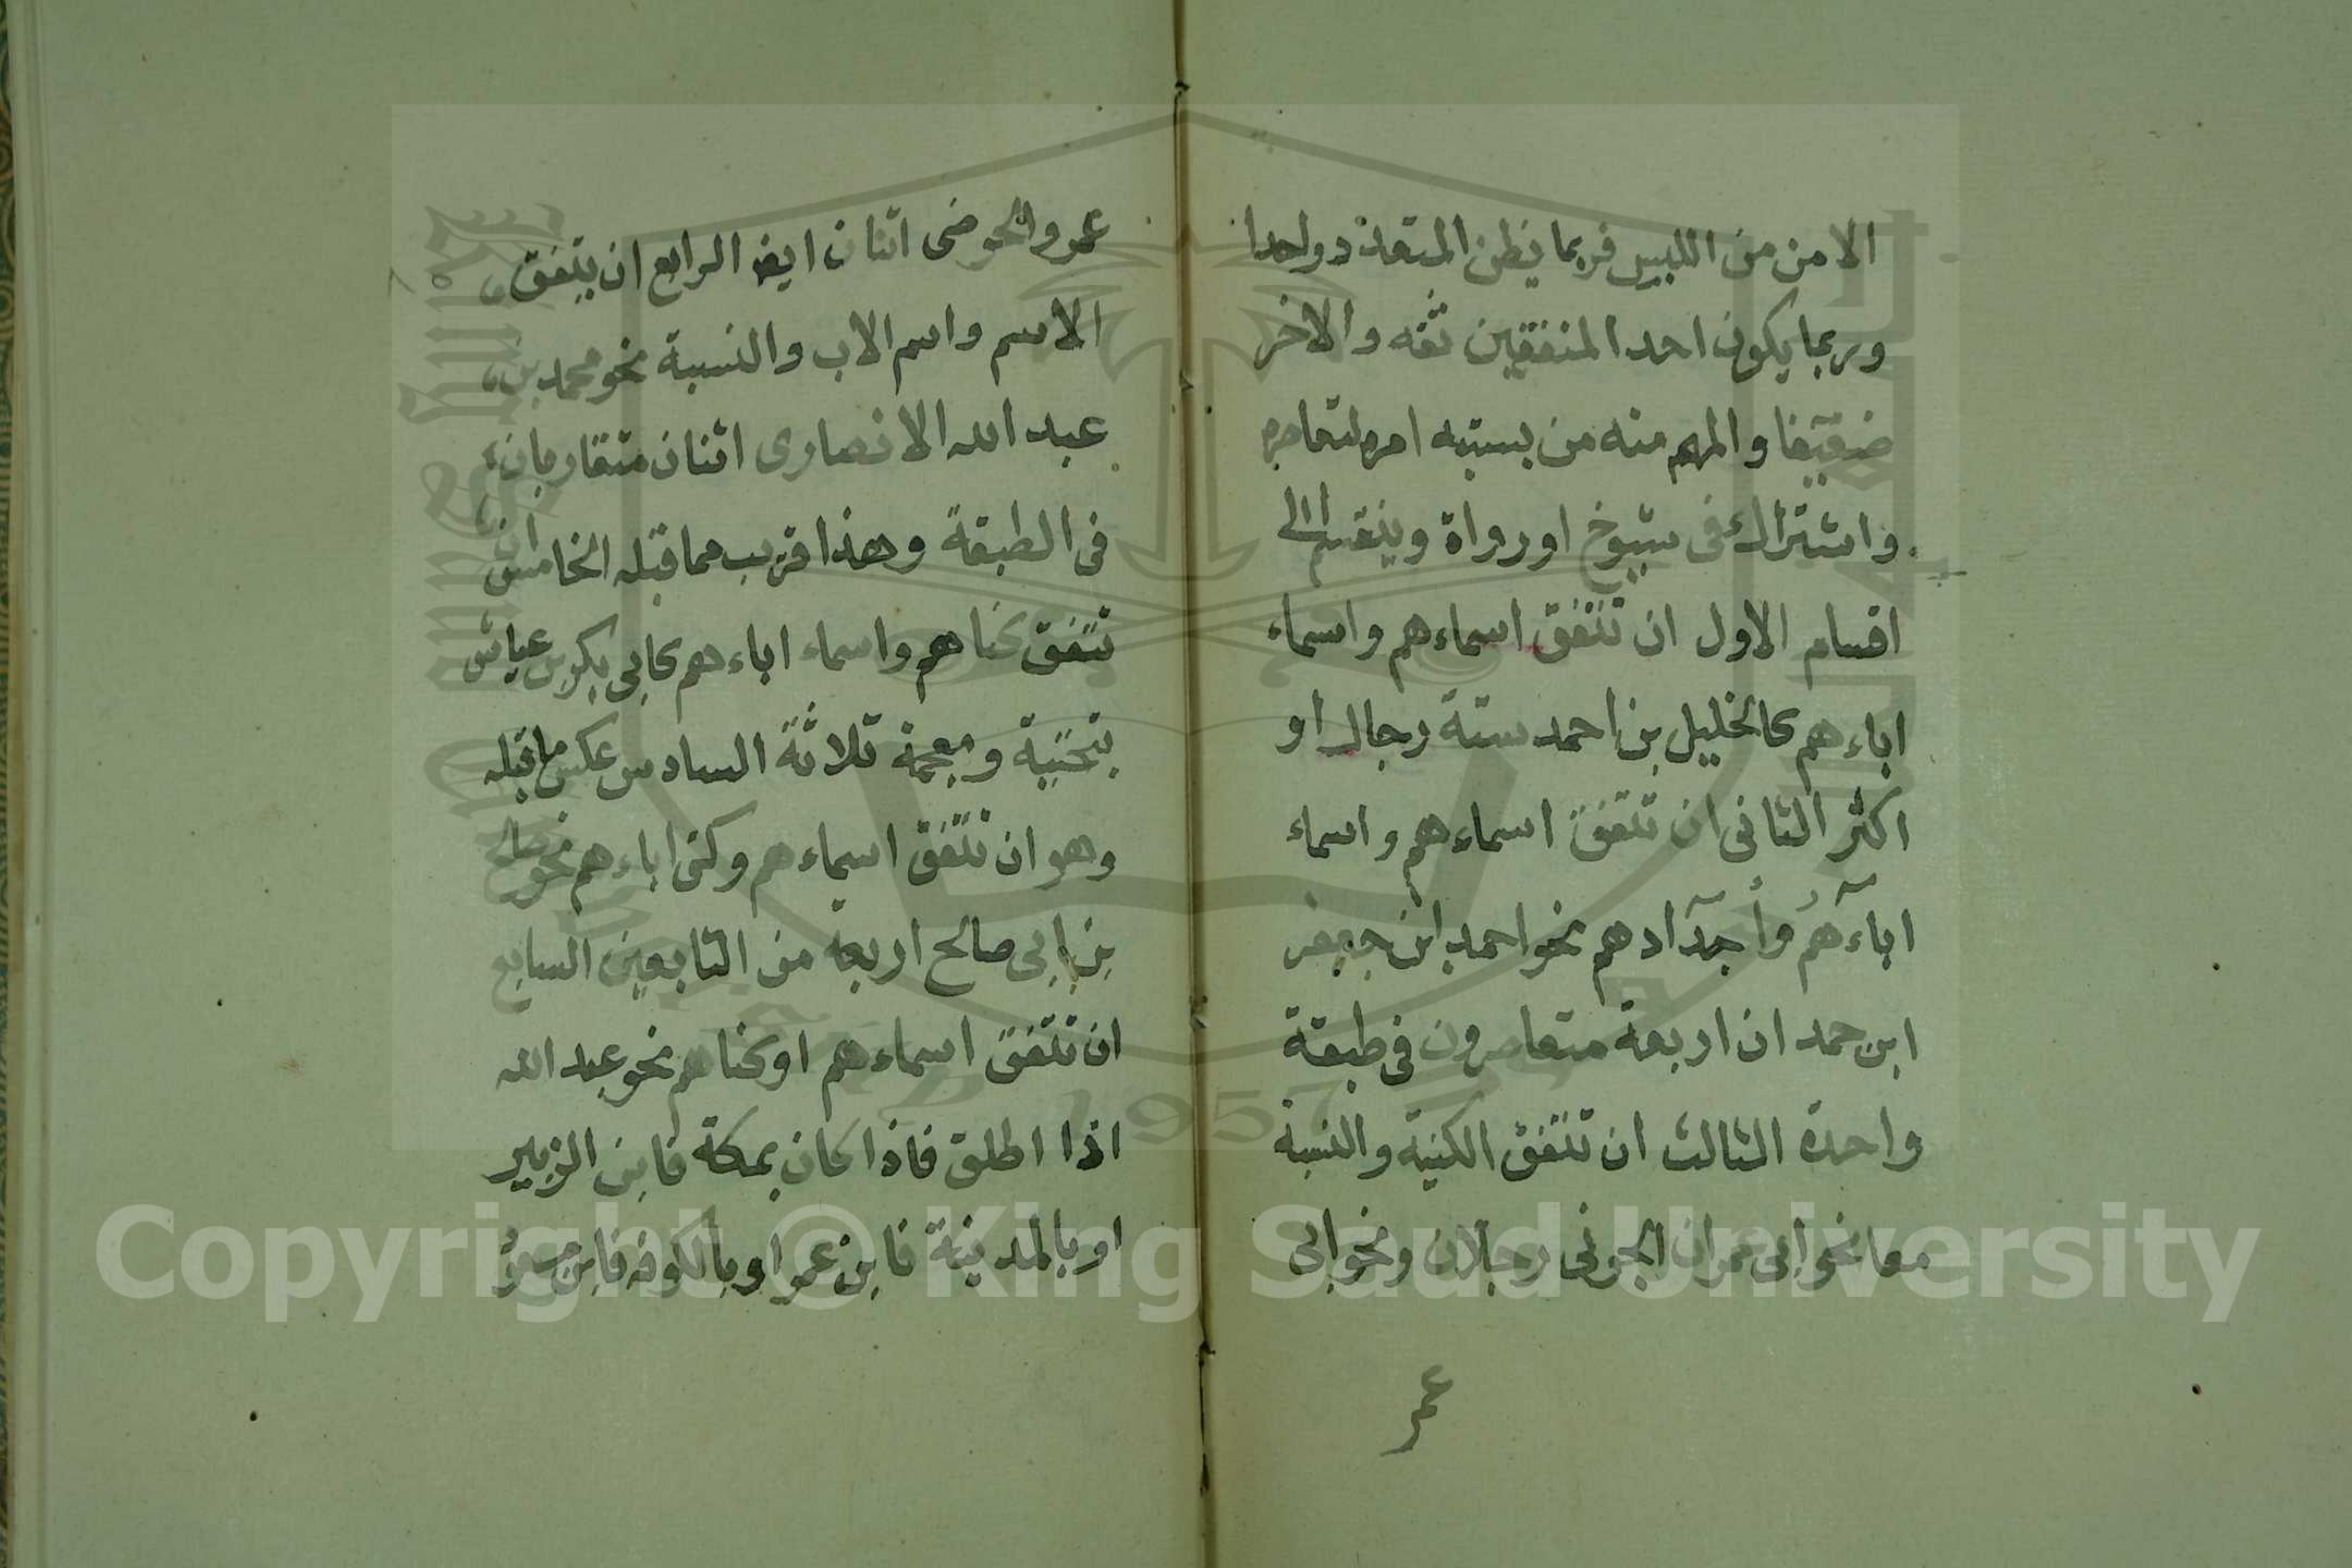 الامن من اللبس فربما يظن المتعدد واحدا
وربما يكون احد المتفقين ثقه والاخر
ضعيفا والمهم منه من يشتبه امره لتعاصره
واشتراك فى شيوخ او رواة وينقسم الى
اقسام الاول ان تتفق اسماءهم واسماء
اباءهم كالخليل بن احمد ستة رجال او
اكثر الثانى ان تتفق اسماءهم واسماء
اباءهم وأجدادهم نحو احمد ابن جعفر
ابن حمدان اربعة متعاصرون فى طبقة
واحدة الثالث ان تتفق الكنية والنسبة
معا نحو ابى عمران الجونى رجلان ونحو ابى
عمر
عمر والحوضى اثنان ايض الرابع ان يتفق
الاسم واسم الاب والنسبة نحو محمد بن
عبد الله الانصارى اثنان متقاربان
فى الطبقة وهذا قريب مما قبله الخامس ان
تتفق كناهم واسماء اباءهم كابى بكر بن عياش
بتحتية ومعجمة ثلاثة السادس عكس ما قبله
وهو ان تتفق اسماءهم وكنى اباءهم نحو صالح
بن ابى صالح اربعة من التابعين السابع
ان تتفق اسماءهم او كناهم نحو عبد الله
اذا اطلق فاذا كان بمكة فابن الزبير
او بالمدينة فابن عمر او بالكوفه فابن مسعود
Copyright © King Saud University
1957